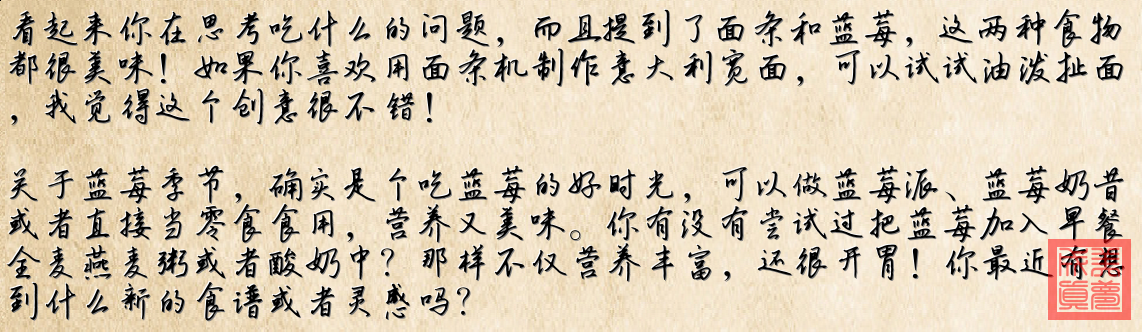 看起来你在思考吃什么的问题，而且提到了面条和蓝莓，这两种食物
都很美味！如果你喜欢用面条机制作意大利宽面，可以试试油泼扯面
，我觉得这个创意很不错！
关于蓝莓季节，确实是个吃蓝莓的好时光，可以做蓝莓派、蓝莓奶昔
或者直接当零食食用，营养又美味。你有没有尝试过把蓝莓加入早餐
全麦燕麦粥或者酸奶中？那样不仅营养丰富，还很开胃！你最近有想
到什么新的食谱或者灵感吗？